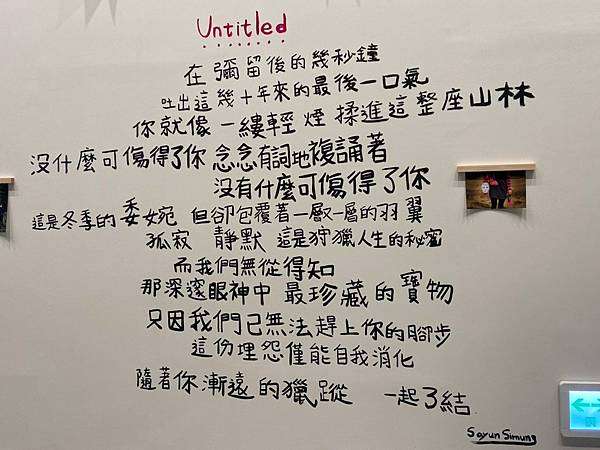 Untitled
在彌留後的幾秒鐘
吐出這幾十年來的最後一口氣
你就像一縷輕煙 揉進這整座山林
沒什麼可傷得了你 念念有詞地複誦著
沒有什麼可傷得了你
這是冬季的委婉 但卻包覆著一層一層的羽翼
孤寂 靜默 這是狩獵人生的秘密
而我們無從得知
那深邃眼神中 最珍藏的寶物
只因我們已無法趕上你的腳步
這份埋怨僅能自我消化
隨著你漸遠的獵蹤 一起了結
Sayun Simung